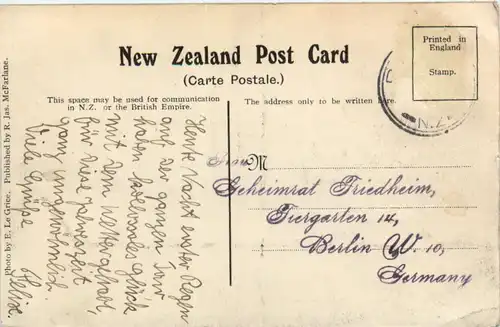 Printed in
England
Stamp.
New Zealand Post Card
(Carte Postale.)
This space may be used for communication
in N.Z. or the British Empire.
The address only to be written here.
N.Z.
Photo by E. Le Grice. Published by R. Jas. McFarlane.
Heute Nacht erster Regen
auf der ganzen Tour
haben kolossales Glück
mit dem Wetter gehabt,
für diese Jahreszeit
ganz ungewöhnlich.
Viele Grüße
Felix.
Frau M
Geheimrat Friedheim,
Tiergarten 14,
Berlin W. 10,
Germany